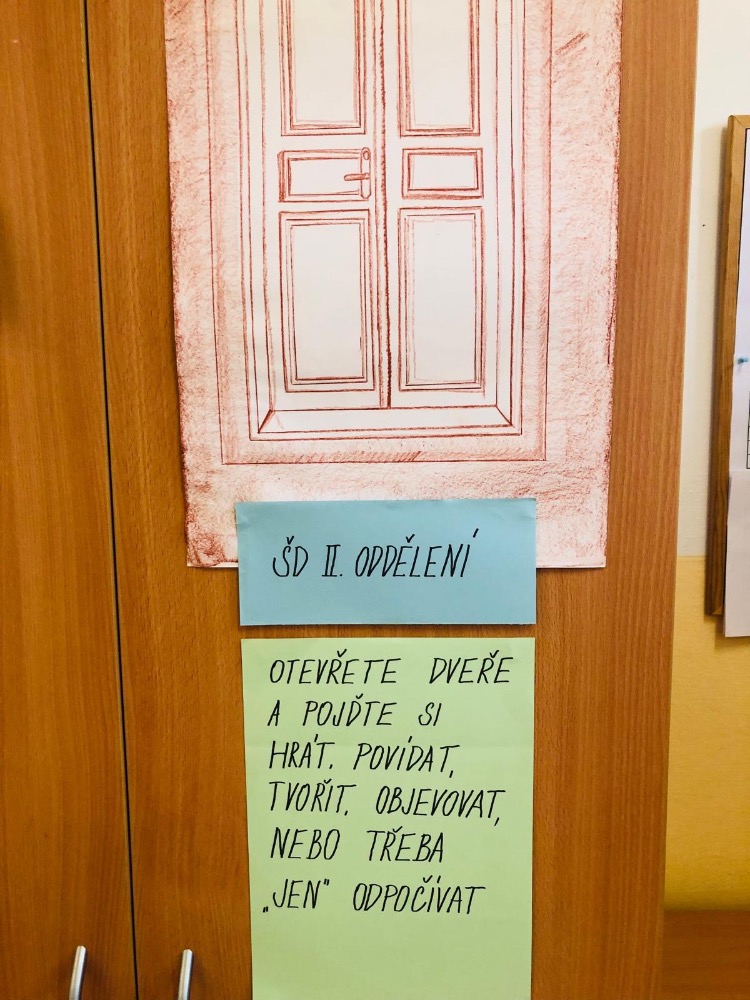 ŠD II. ODDĚLENÍ
OTEVŘETE DVEŘE
A POJĎTE SI
HRÁT. POVÍDAT,
TVOŘIT. OBJEVOVAT,
NEBO TŘEBA
„JEN“ ODPOČÍVAT